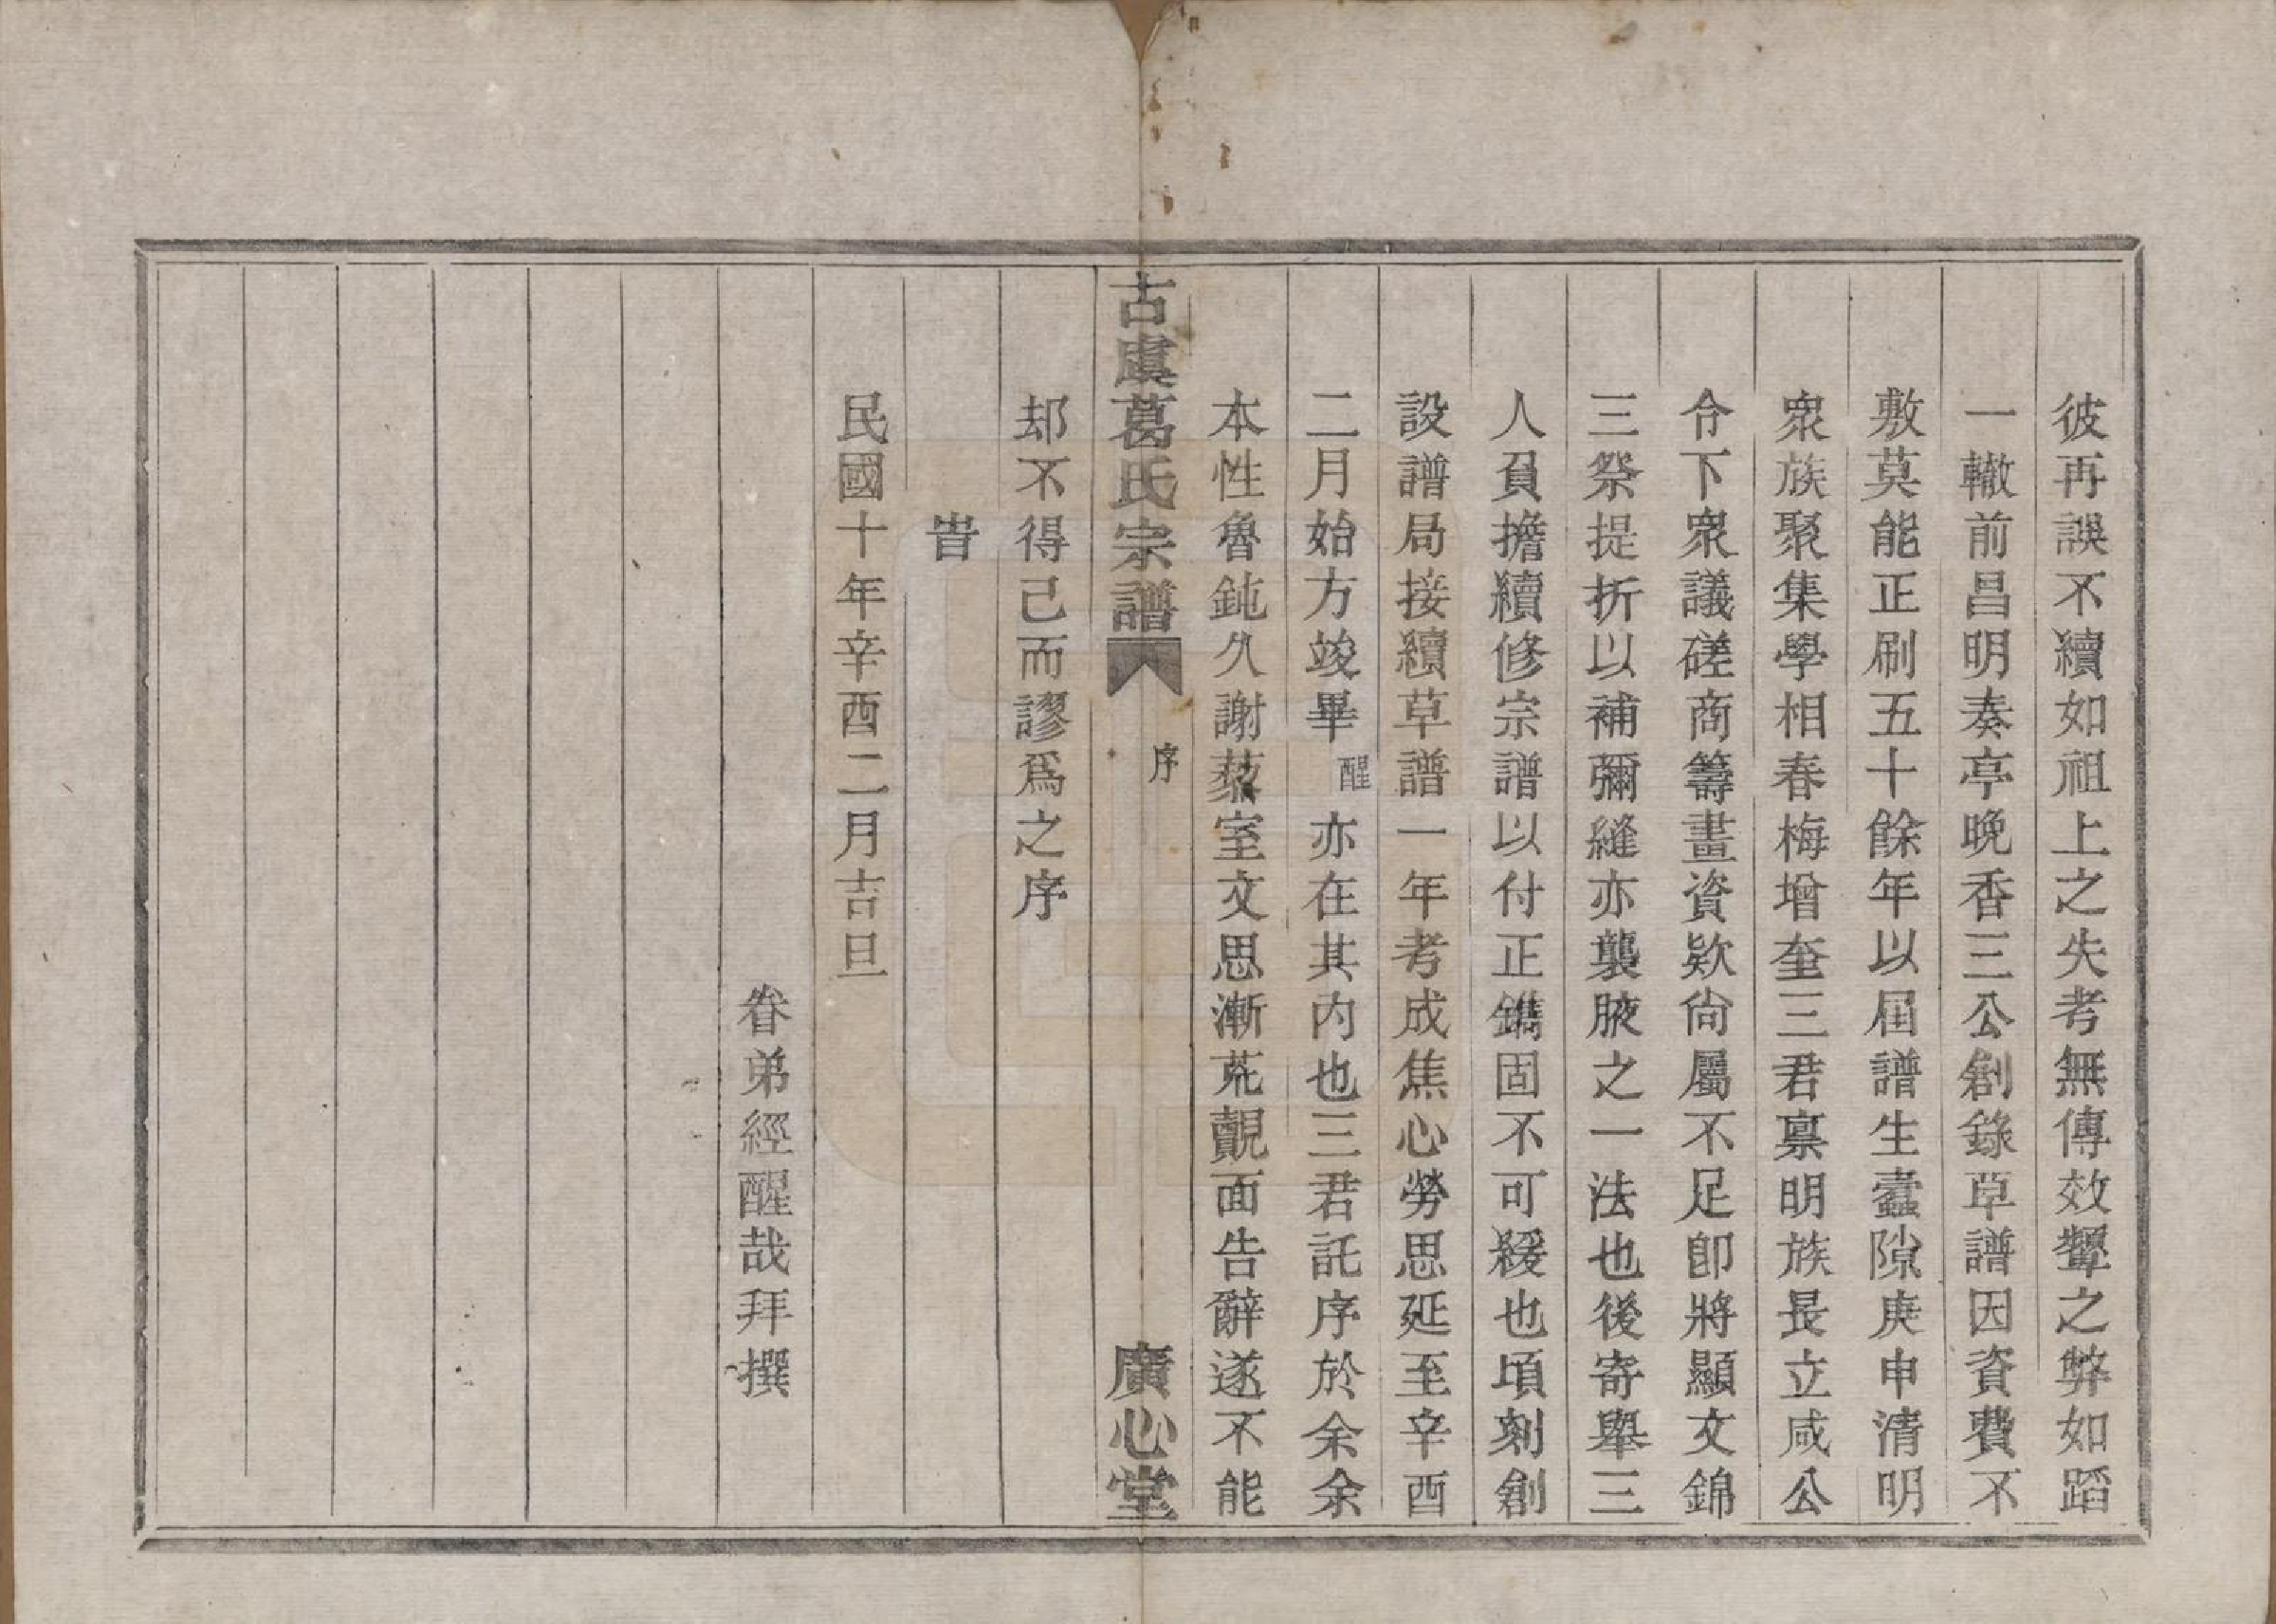 彼再誤不續如祖上之失考無傳效顰之弊如蹈
一轍前昌明奏亭晚香三公創錄草譜因資費不
敷莫能正刷五十餘年以屆譜生蠹隙庚申清明
衆族聚集學相春梅增奎三君稟明族長立咸公
令下衆議磋商籌畫資欵尙屬不足卽將顯文錦
三祭提折以補彌縫亦襲腋之一法也後寄舉三
人負擔續修宗譜以付正鐫固不可緩也頃刻創
設譜局接續草譜一年考成焦心勞思延至辛酉
二月始方竣畢醒亦在其内也三君託序於余余
本性魯鈍久謝蔾室文思漸荒覿面告辭遂不能
古虞葛氏宗譜 序 廣心堂
却不得己而謬爲之序
旹
民國十年辛酉二月吉旦
眷弟經醒哉拜撰